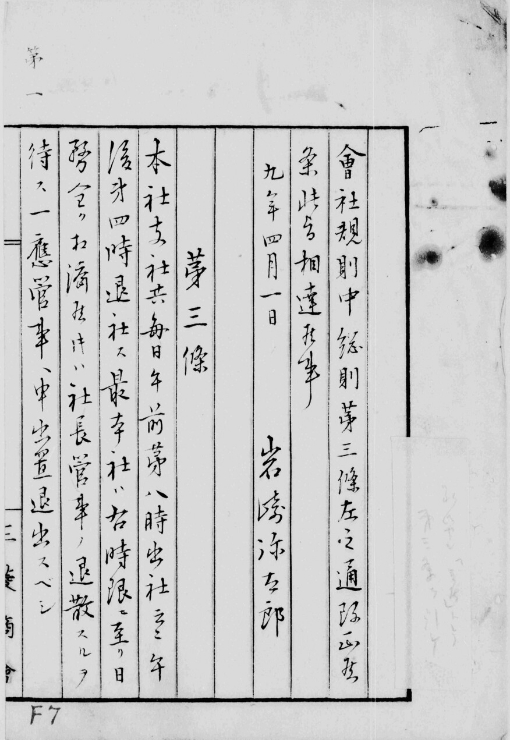 會社規則中総則第三條左之通改正候
条此旨相達候事
九年四月一日
岩崎弥太郎
第三條
本社支社共毎日午前第八時出社シ午
後第四時退社ス最本社ハ右時限ニ至リ日
務全ク相済候共社長管事ノ退散スルヲ
待ス一應管事ヘ申出置退出スベシ
三菱商會
第一
F7